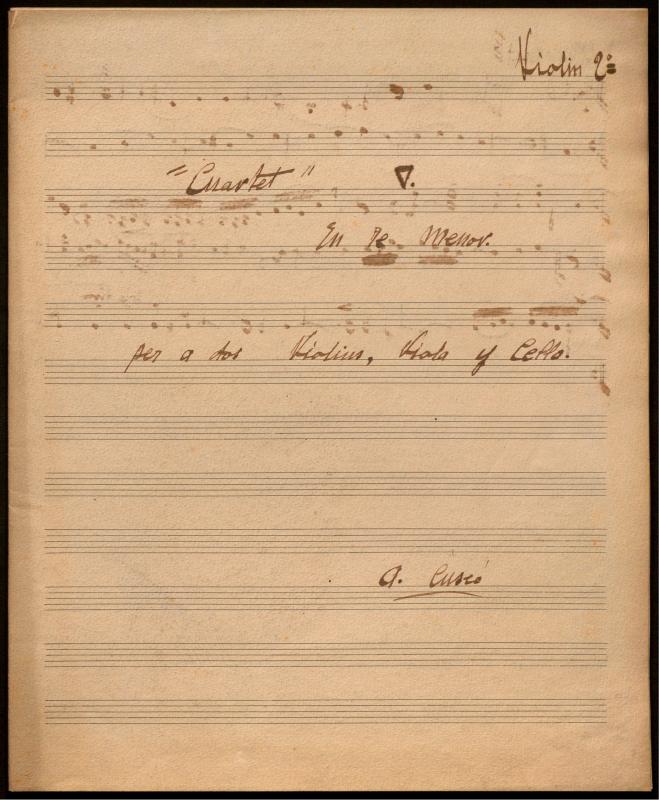 Violin 2º
"Cuartet" V.
En Re Menor.
per a dos Violins, Viola y Cello.
A. Cuscó